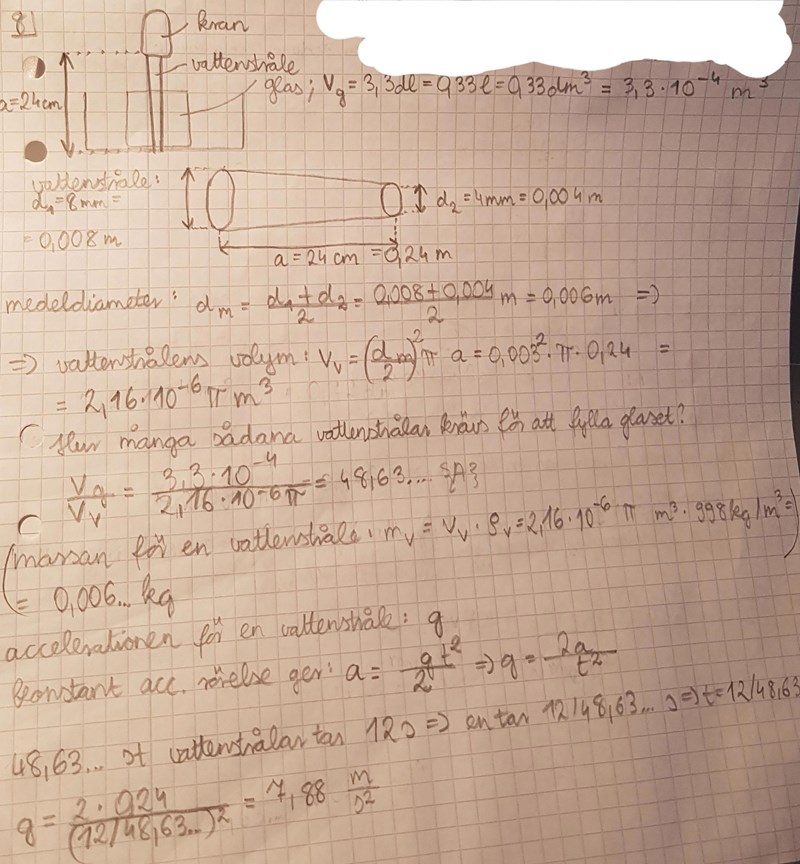 8
kran
vattenstråle
glas; Vg = 3,3dl = 0,33l = 0,33dm³ = 3,3·10⁻⁴ m³
a=24cm
vattenstråle:
d₁=8mm=
=0,008m
d₂=4mm=0,004m
a=24cm=0,24m
medeldiameter: dₘ = (d₁+d₂)/2 = (0,008+0,004)/2 m = 0,006m =>
=> vattenstrålens volym: Vᵥ = (dm/2)² π a = 0,003²·π·0,24 =
= 2,16·10⁻⁶ π m³
Hur många sådana vattenstrålar krävs för att fylla glaset?
Vg/Vᵥ = 3,3·10⁻⁴/2,16·10⁻⁶π = 48,63... {A}
(massan för en vattenstråle: mᵥ = Vᵥ·ρᵥ = 2,16·10⁻⁶ π m³·998kg/m³=
= 0,006... kg)
accelerationen för en vattenstråle: g
konstant acc. rörelse ger: a = gt²/2 => g = 2a/t²
48,63... st vattenstrålar tar 12s => en tar 12/48,63... s => t=12/48,63
g = 2·0,24/(12/48,63...)² = 7,88 m/s²